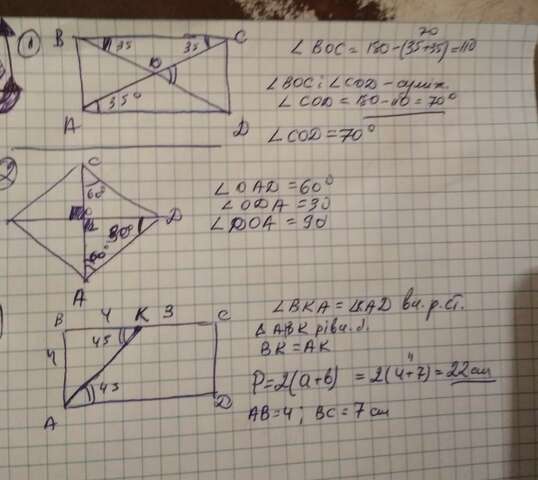 1
B C
35 35
O
35°
A D
70
∠BOC = 180-(35+35)=110
∠BOC і ∠COD - суміж.
∠COD = 180-110=70°
∠COD=70°
2
C
60°
D
30°
60°
A
∠OAD = 60°
∠ODA = 30
∠DOA = 90
B 4 K 3 C
45
4
45
A D
∠BKA = ∠KAD вн. р. ст.
Δ ABK рівн. б.
BK = AK
4
P=2(a+b) = 2(4+7) = 22 см
AB=4 ; BC = 7 см